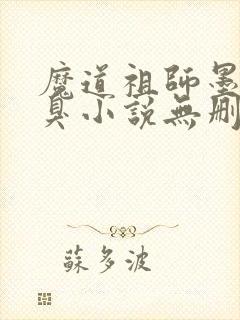 魔道祖師墨
臭小説無刪
蘇多波